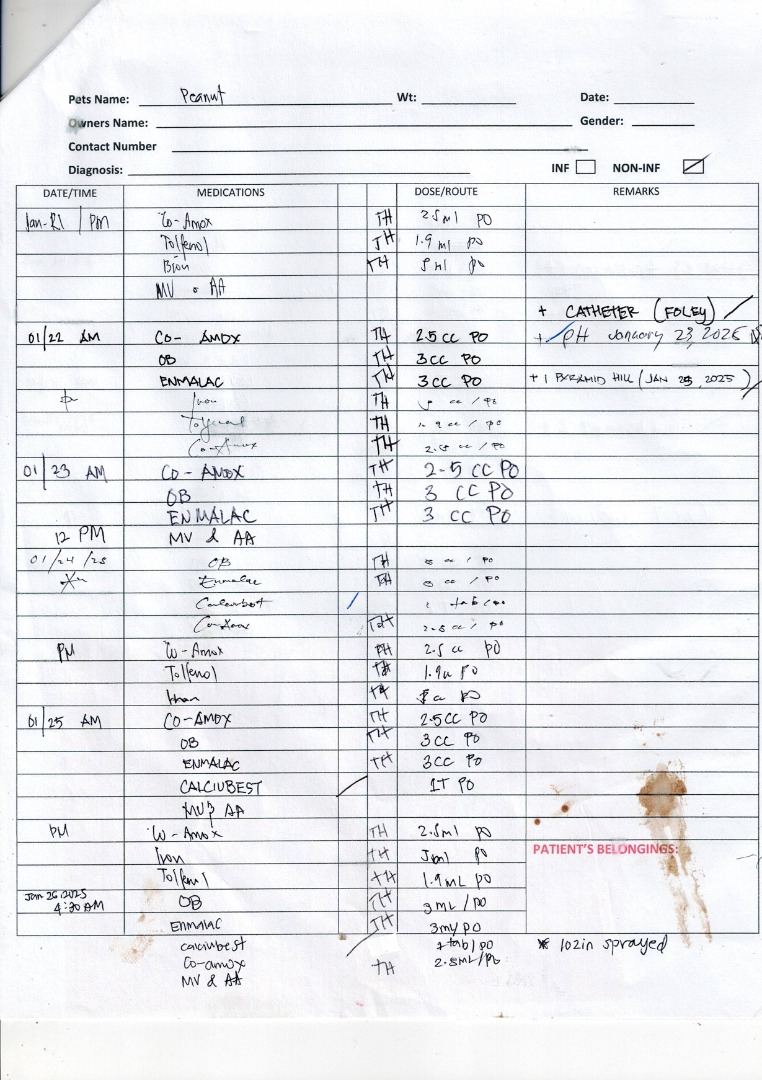 Pets Name: Peanut Wt: Date:
Owners Name: Gender:
Contact Number
Diagnosis: INF NON-INF
DATE/TIME MEDICATIONS DOSE/ROUTE REMARKS
Jan-21 / PM Co-Amox TH 2.5ml PO
Tolfenol TH 1.9 ml PO
TH ml PO
MV & AA
+ CATHETER (FOLEY)
01/22 AM CO-AMOX TH 2.5 cc PO + PH January 23, 2025
OB TH 3cc PO
ENMALAC TH 3cc PO + 1 PYRAMID HILL (JAN 25, 2025)
Iron TH cc / PO
TH 1.9 cc / PO
Co-Amox TH 2.5 cc / PO
01/23 AM CO-AMOX TH 2-5 CC PO
OB TH 3 CC PO
ENMALAC TH 3 CC PO
12 PM MV & AA
01/24/25 OB TH cc / PO
Enmalac TH cc / PO
Calciubest tab/PO
Co-Amox TH 2.5 cc / PO
PM Co-Amox TH 2.5 cc PO
Tolfenol TH 1.9cc PO
TH cc PO
01/25 AM CO-AMOX TH 2.5CC PO
OB TH 3CC PO
ENMALAC TH 3CC PO
CALCIUBEST 1T PO
MV & AA
PM Co-Amox TH 2.5ml PO
Iron TH ml PO PATIENT'S BELONGINGS:
Tolfenol TH 1.9ML PO
Jan 26, 2025 4:30 AM OB TH 3ML/PO
ENMALAC TH 3ml PO
calciubest 1 tab/PO * 102in sprayed
Co-amox TH 2.5ML/PO
MV & AA